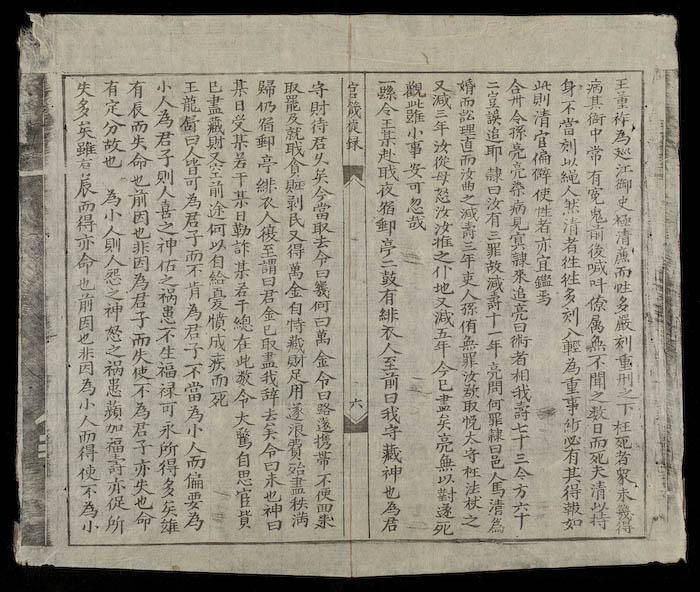 王董祚為巡江御史極清廉而性多嚴刻重刑之下枉死者衆未幾得
病其衙中常有冤鬼前後喊叫僚属無不聞之数日而死夫清以持
身不當刻以繩人然清者徃徃多刻入輕為重事防必有其得報如
此則清官偏僻使性者亦宜鑑焉
合州令孫亮亮染病見冥隷來追亮曰術者相我壽七十三今方六十
二豈誤追耶隷曰汝有三罪故減壽十一年亮問何罪隷曰邑人馬清為
婚而訟理直而汝曲之減壽三年吏人孫侑無罪汝欲取悅太守枉法杖之
又減三年汝從母怒汝汝推之仆地又減五年今已盡矣亮無以對遂死
觀此雖小事安可忽哉
一縣令王某赴職夜宿郵亭二鼓有緋衣人至前曰我守藏神也為君
官箴捷録
六
守財待君久矣今當取去令曰幾何曰萬金令曰路遠携帶不便回来
取罷及就職貪贓剥民又得萬金自恃藏財足用遂浪費殆盡秩満
歸仍宿郵亭緋衣人復至謂曰君金已取盡我辞去矣令曰未也神曰
某日受某若干某日勒詐某若干總在此数令大驚自思宦貲
已盡藏財又空前途何以自給憂憤成疾而死
王龍舒曰人皆可為君子而不肯為君子不當為小人而偏要為
小人為君子則人喜之神佑之禍患不生福禄可永所得多矣雖
有辰而失命也前因也非因為君子而失使不為君子亦失也命
有定分故也 為小人則人怨之神怒之禍患頻加福壽亦促所
失多矣雖有辰而得亦命也前因也非因為小人而得使不為小